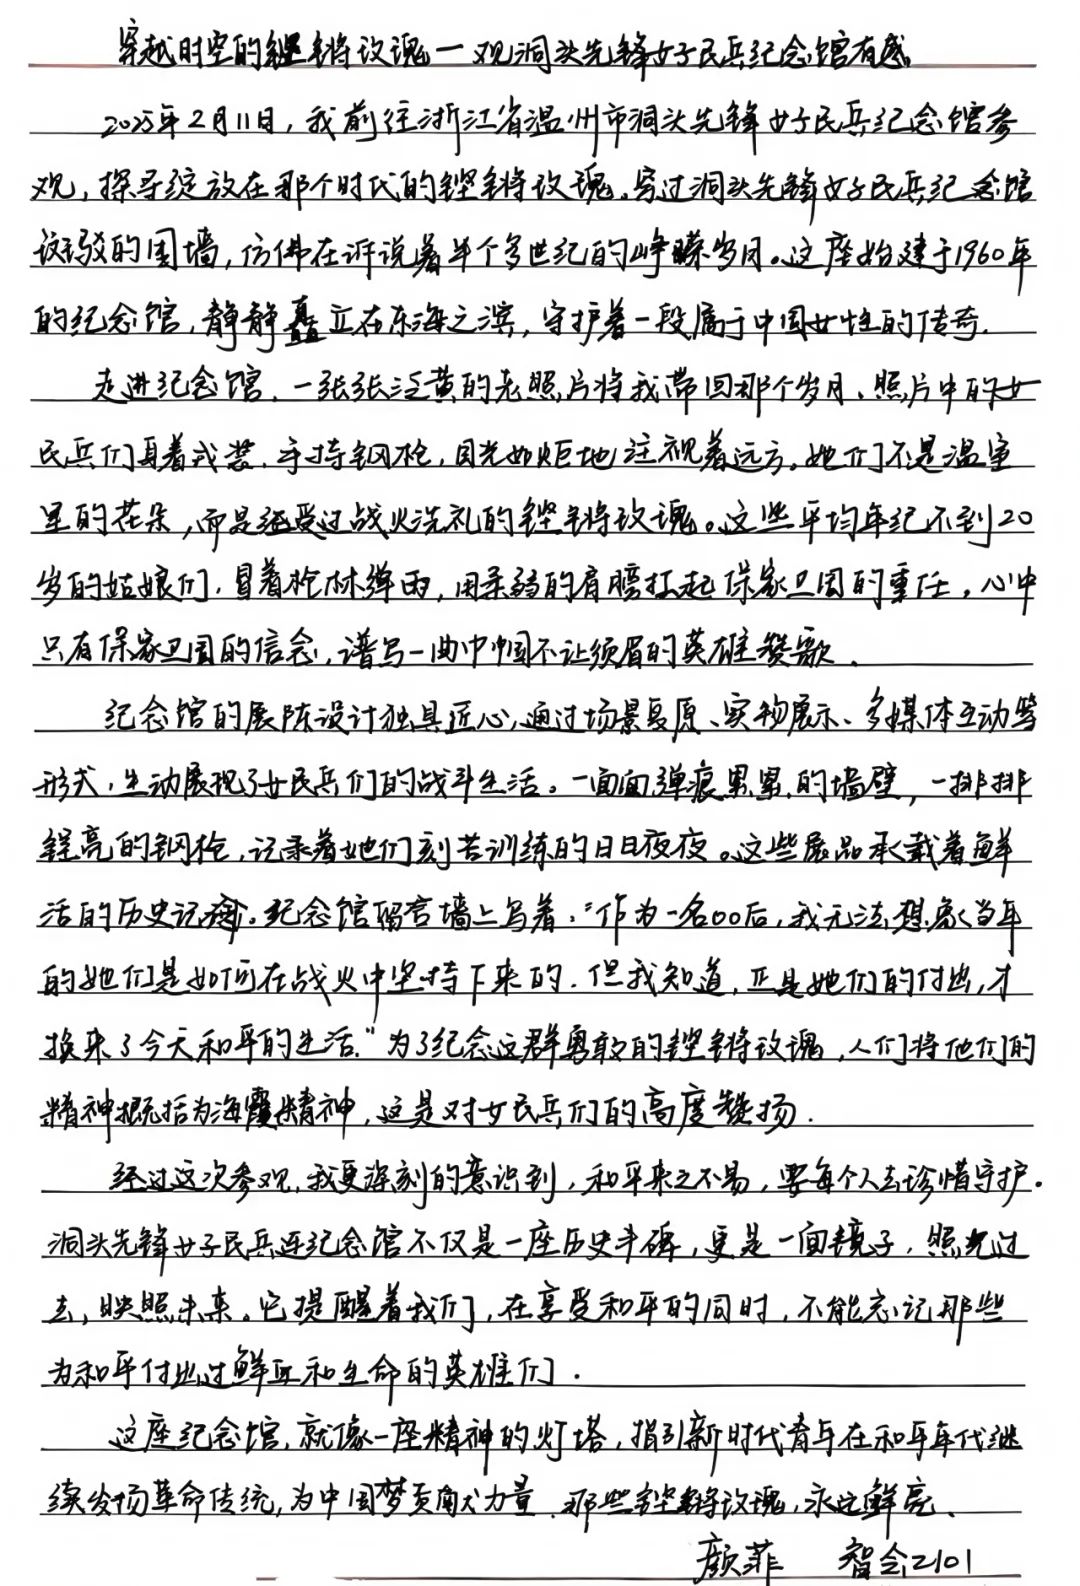 穿越时空的铿锵玫瑰—观洞头先锋女子民兵纪念馆有感
2025年2月11日，我前往浙江省温州市洞头先锋女子民兵纪念馆参
观，探寻绽放在那个时代的铿锵玫瑰。穿过洞头先锋女子民兵纪念馆
斑驳的围墙，仿佛在诉说着半个多世纪的峥嵘岁月。这座始建于1960年
的纪念馆，静静矗立在东海之滨，守护着一段属于中国女性的传奇.
走进纪念馆，一张张泛黄的老照片将我带回那个岁月.照片中的女
民兵们身着戎装.手持钢枪，目光如炬地注视着远方。她们不是温室
里的花朵，而是经受过战火洗礼的铿锵玫瑰。这些平均年纪不到20
岁的姑娘们，冒着枪林弹雨，用柔弱的肩膀扛起保家卫国的重任。心中
只有保家卫国的信念，谱写一曲巾帼不让须眉的英雄赞歌.
纪念馆的展陈设计独具匠心，通过场景复原、实物展示、多媒体互动等
形式，生动展现了女民兵们的战斗生活。一面面弹痕累累的墙壁，一排排
锃亮的钢枪，记录着她们刻苦训练的日日夜夜。这些展品承载着鲜
活的历史记忆。纪念馆留言墙上写着：“作为一名00后，我无法想象当年
的她们是如何在战火中坚持下来的.但我知道，正是她们的付出，才
换来了今天和平的生活.”为了纪念这群勇敢的铿锵玫瑰，人们将他们的
精神概括为海霞精神，这是对女民兵们的高度赞扬.
经过这次参观，我更深刻的意识到，和平来之不易，要每个人去珍惜守护.
洞头先锋女子民兵连纪念馆不仅是一座历史丰碑，更是一面镜子，照见过
去，映照未来。它提醒着我们，在享受和平的同时，不能忘记那些
为和平付出过鲜血和生命的英雄们.
这座纪念馆，就像一座精神的灯塔，指引新时代青年在和平年代继
续发扬革命传统，为中国梦贡献力量.那些铿锵玫瑰，永远鲜亮.
颜菲 智会2101